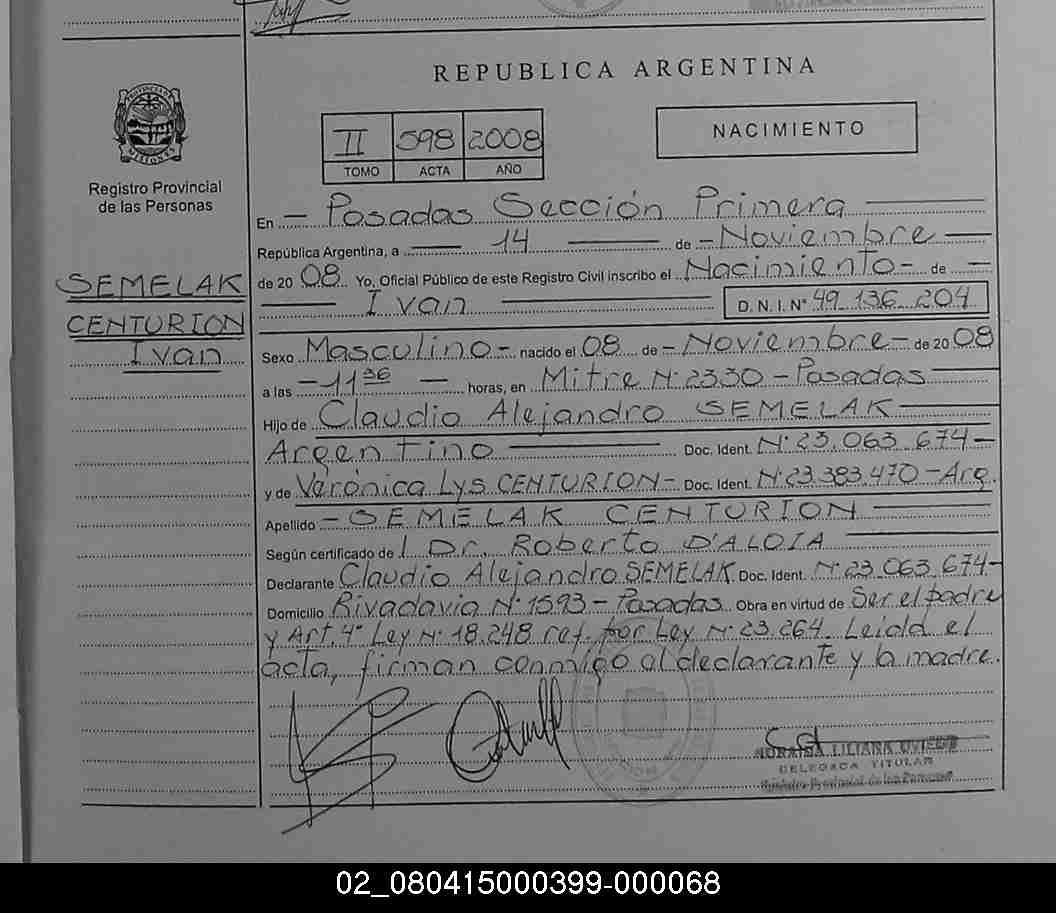 REPUBLICA ARGENTINA
PROVINCIA DE MISIONES
Registro Provincial
de las Personas
II 598 2008
TOMO ACTA AÑO
NACIMIENTO
SEMELAK
CENTURION
Ivan
En - Posadas Sección Primera
República Argentina, a 14 de - Noviembre
de 20 08 Yo, Oficial Público de este Registro Civil inscribo el Nacimiento - de -
Ivan D. N. I. N° 49.136.204
Sexo Masculino - nacido el 08 de - Noviembre - de 20 08
a las - 11 36 - horas, en Mitre N° 2330 - Posadas
Hijo de Claudio Alejandro SEMELAK
Argentino Doc. Ident. N° 23.063.674 -
y de Verónica Lys CENTURION - Doc. Ident. N° 23.383.470 - Arg.
Apellido - SEMELAK CENTURION
Según certificado de l Dr. Roberto D'ALOIA
Declarante Claudio Alejandro SEMELAK Doc. Ident. N° 23.063.674 -
Domicilio Rivadavia N° 1593 - Posadas Obra en virtud de Ser el padre
y Art. 4° Ley N° 18.248 ref. por Ley N° 23.264. Leida el
acta, firman conmigo el declarante y la madre.
LILIANA OVIEDO
DELEGADA TITULAR
Registro Provincial de las Personas
02_080415000399-000068